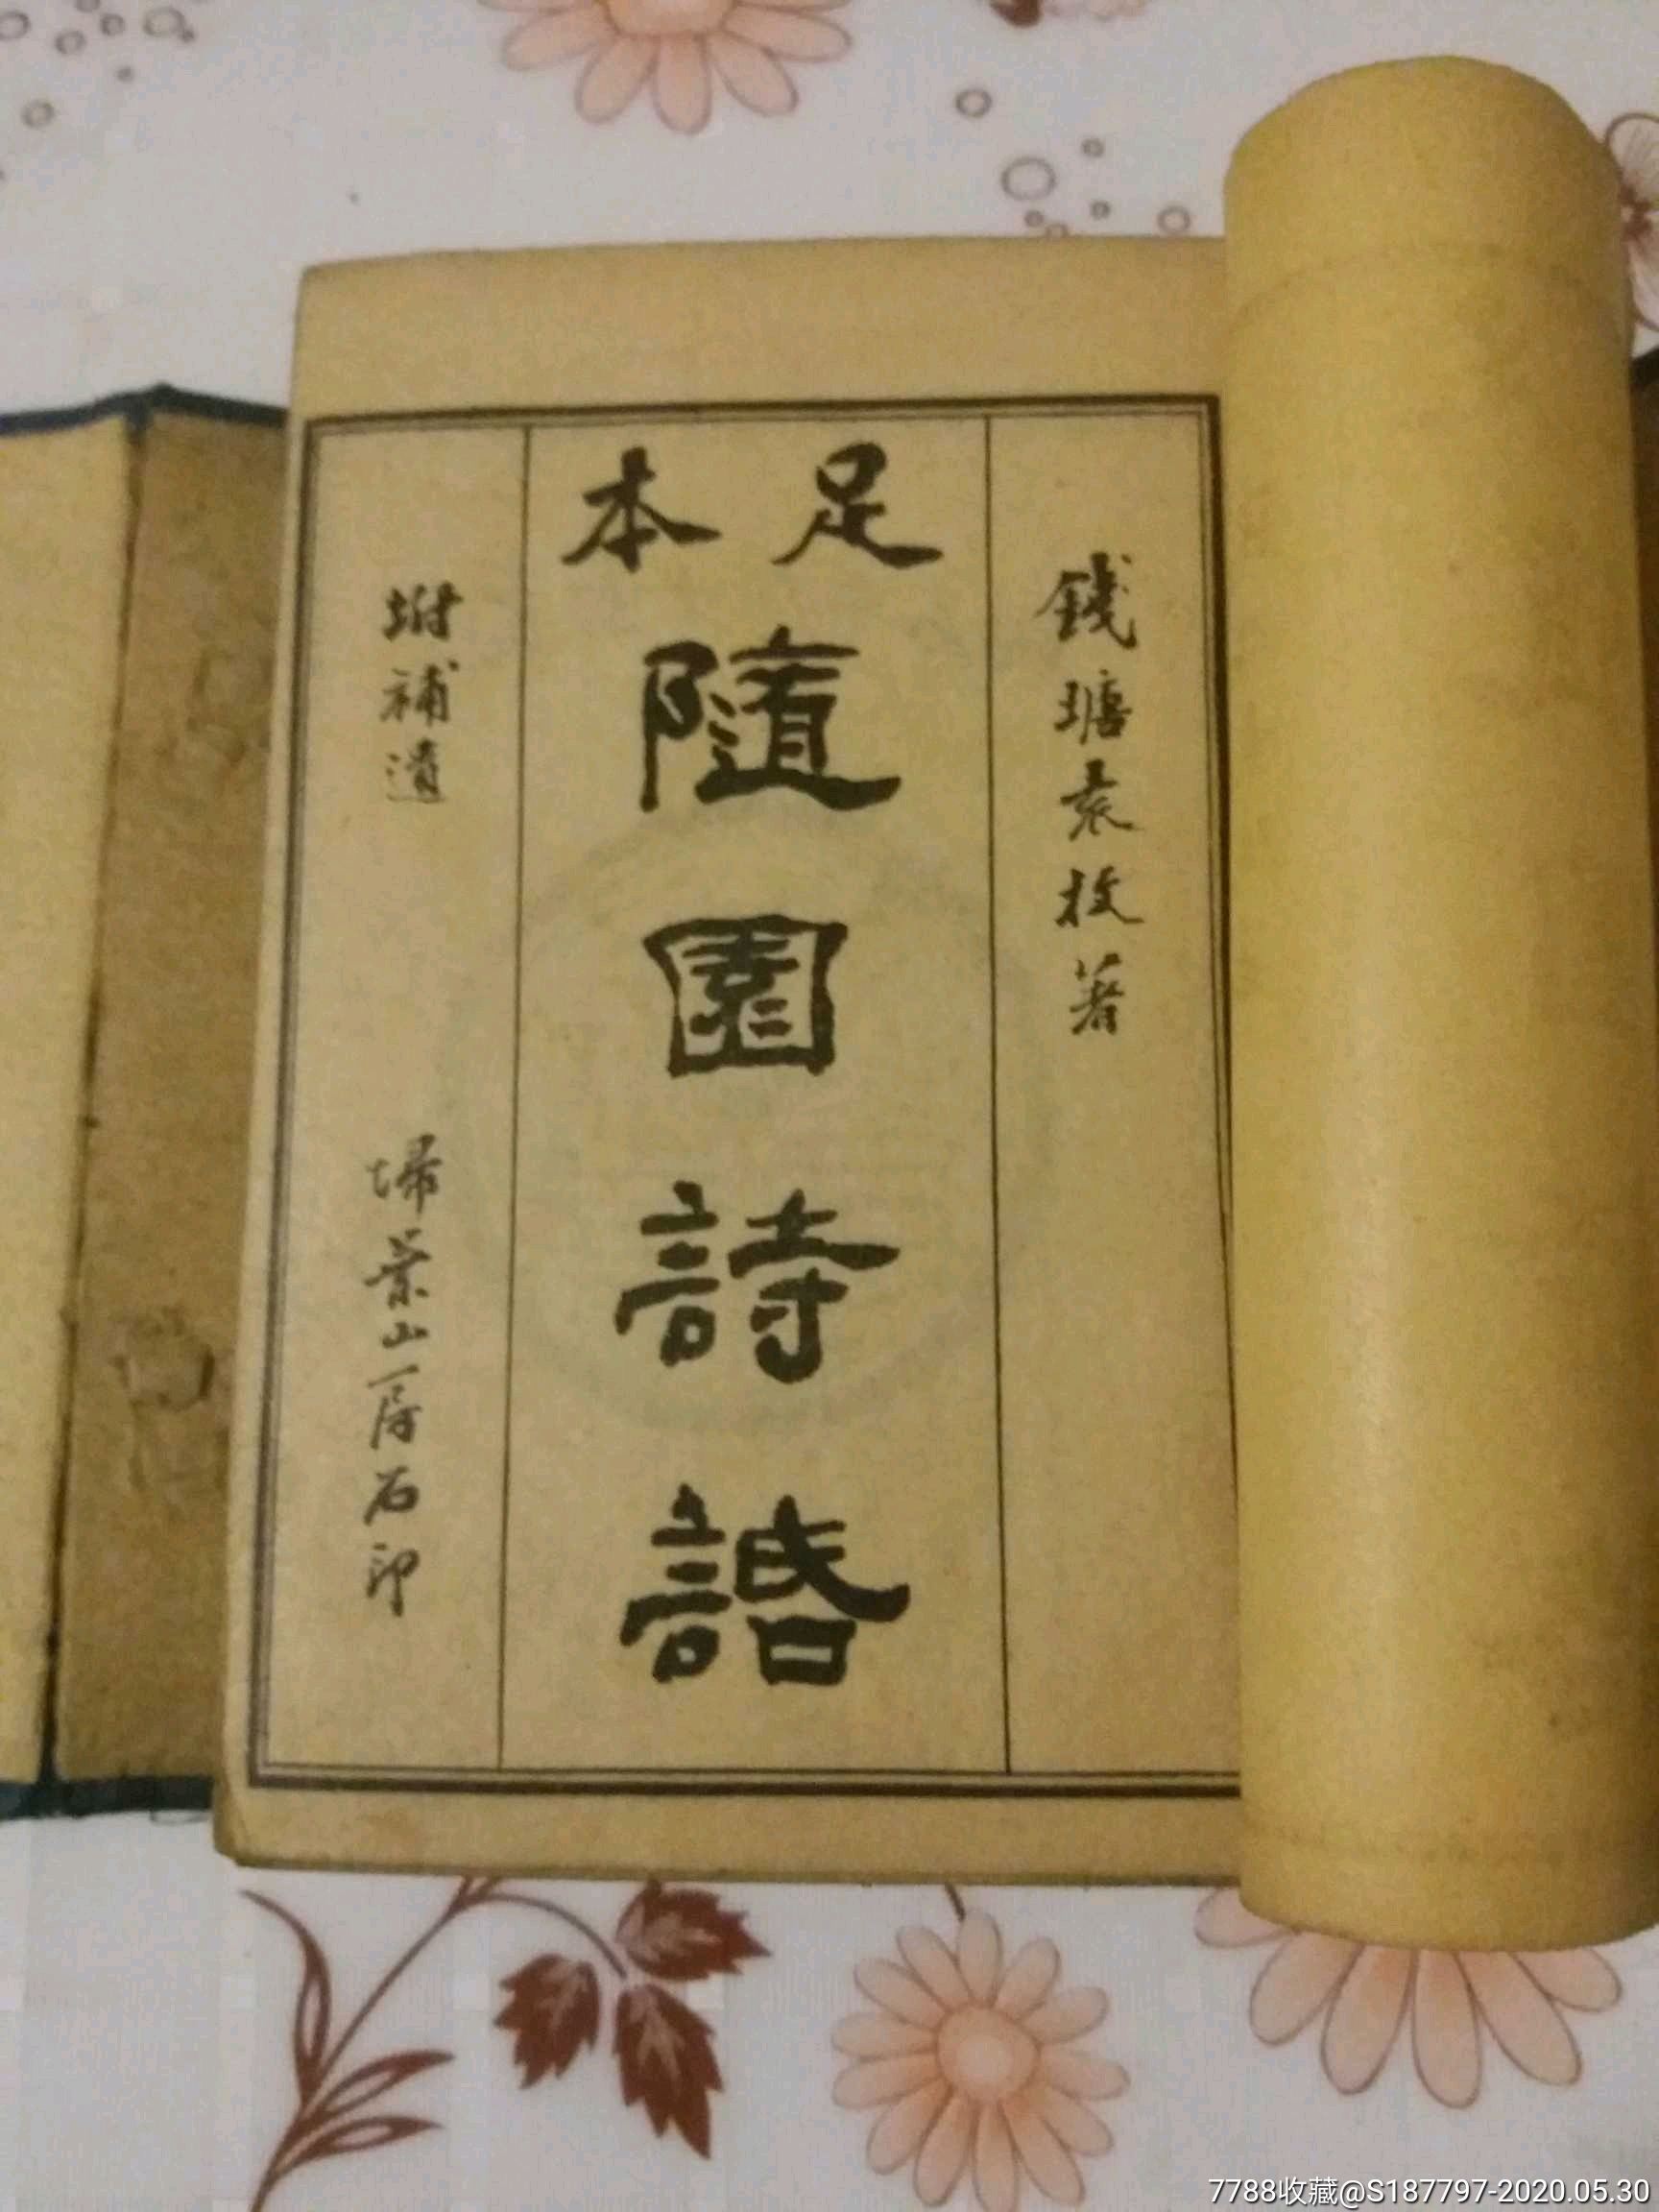 錢塘袁枚著
足本
隨園詩話
坿補遺
埽葉山房石印
7788收藏@S187797-2020.05.30